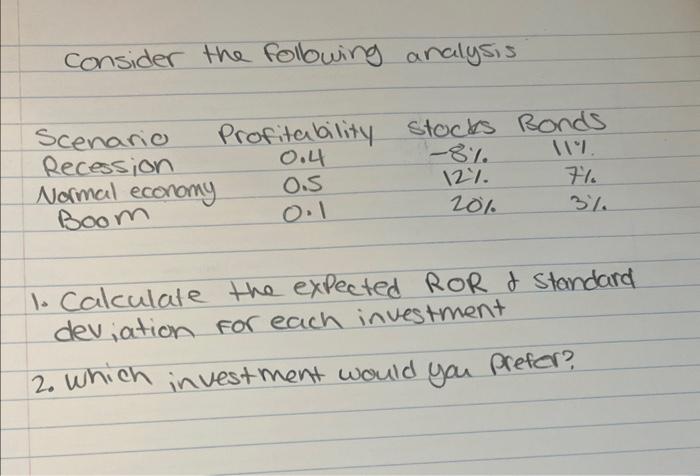 Consider the following analysis
Scenario Profitability Stocks Bonds
Recession 0.4 -8% 11%
Normal economy 0.5 12% 7%
Boom 0.1 20% 3%
1. Calculate the expected ROR & Standard
deviation For each investment
2. Which investment would you prefer?